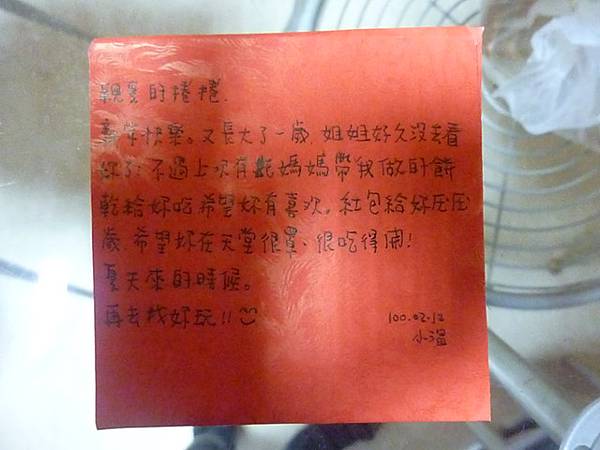 親愛的捲捲.
新年快樂。又長大了一歲,姐姐好久沒去看
妳了!不過上次有託媽媽帶我做的餅
乾給妳吃希望妳有喜欢。紅包給妳压压
歲,希望妳在天堂很罩、很吃得開!
夏天來的時候。
再去找妳玩!!
100.02.12
小溫